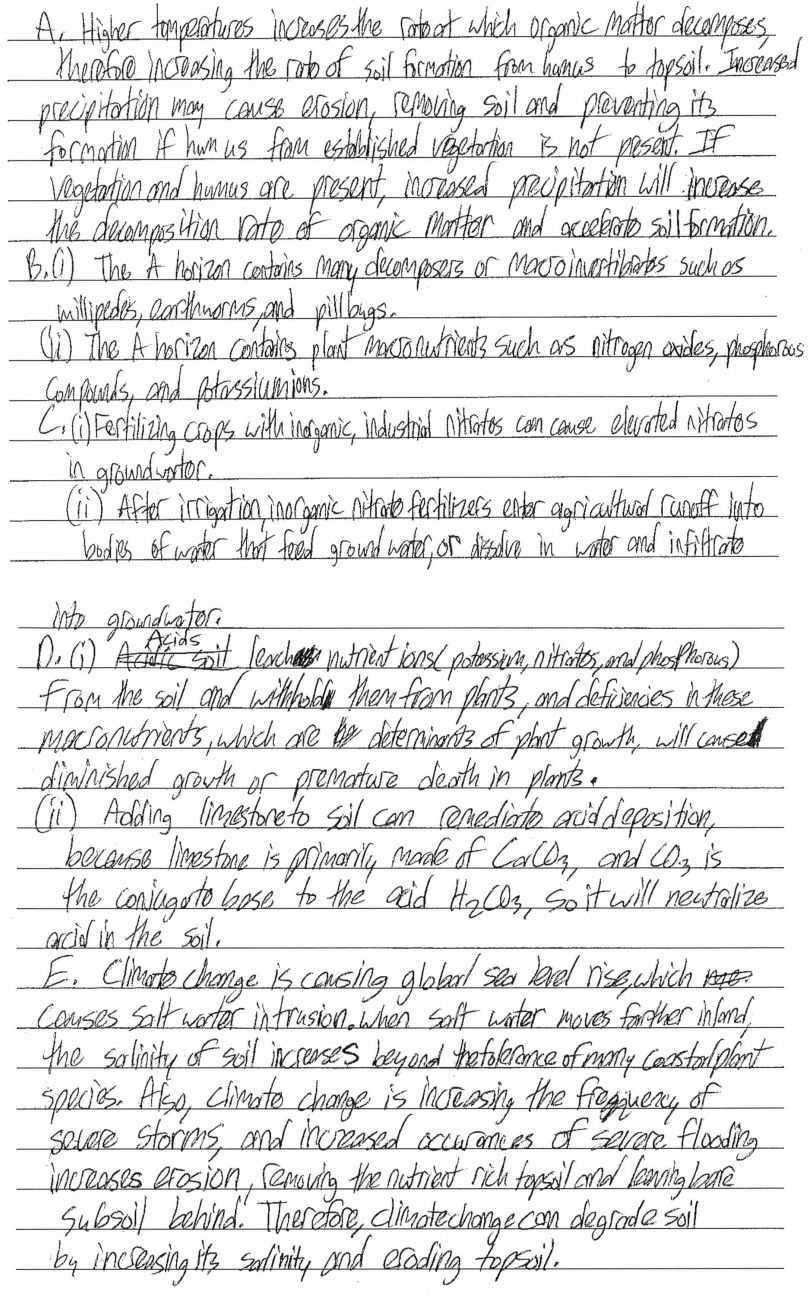 A. Higher temperatures increases the rate at which organic matter decomposes,
therefore increasing the rate of soil formation from humus to topsoil. Increased
precipitation may cause erosion, removing soil and preventing its
formation if humus from established vegetation is not present. If
vegetation and humus are present, increased precipitation will increase
the decomposition rate of organic matter and accelerate soil formation.
B. (i) The A horizon contains many decomposers or macroinvertibrates such as
millipedes, earthworms, and pillbugs.
(ii) The A horizon contains plant macronutrients such as nitrogen oxides, phosphorous
compounds, and potassium ions.
C. (i) Fertilizing crops with inorganic, industrial nitrates can cause elevated nitrates
in groundwater.
(ii) After irrigation, inorganic nitrate fertilizers enter agricultural runoff into
bodies of water that feed ground water, or dissolve in water and infiltrate
into groundwater.
D. (i) Acids leach nutrient ions (potassium, nitrates, and phosphorous)
from the soil and withhold them from plants, and deficiencies in these
macronutrients, which are determinants of plant growth, will cause
diminished growth or premature death in plants.
(ii) Adding limestone to soil can remediate acid deposition,
because limestone is primarily made of CaCO3, and CO3 is
the conjugate base to the acid H2CO3, so it will neutralize
acid in the soil.
E. Climate change is causing global sea level rise, which
causes salt water intrusion. When salt water moves farther inland,
the salinity of soil increases beyond the tolerance of many coastal plant
species. Also, climate change is increasing the frequency of
severe storms, and increased occurances of severe flooding
increases erosion, removing the nutrient rich topsoil and leaving bare
subsoil behind. Therefore, climate change can degrade soil
by increasing its salinity and eroding topsoil.